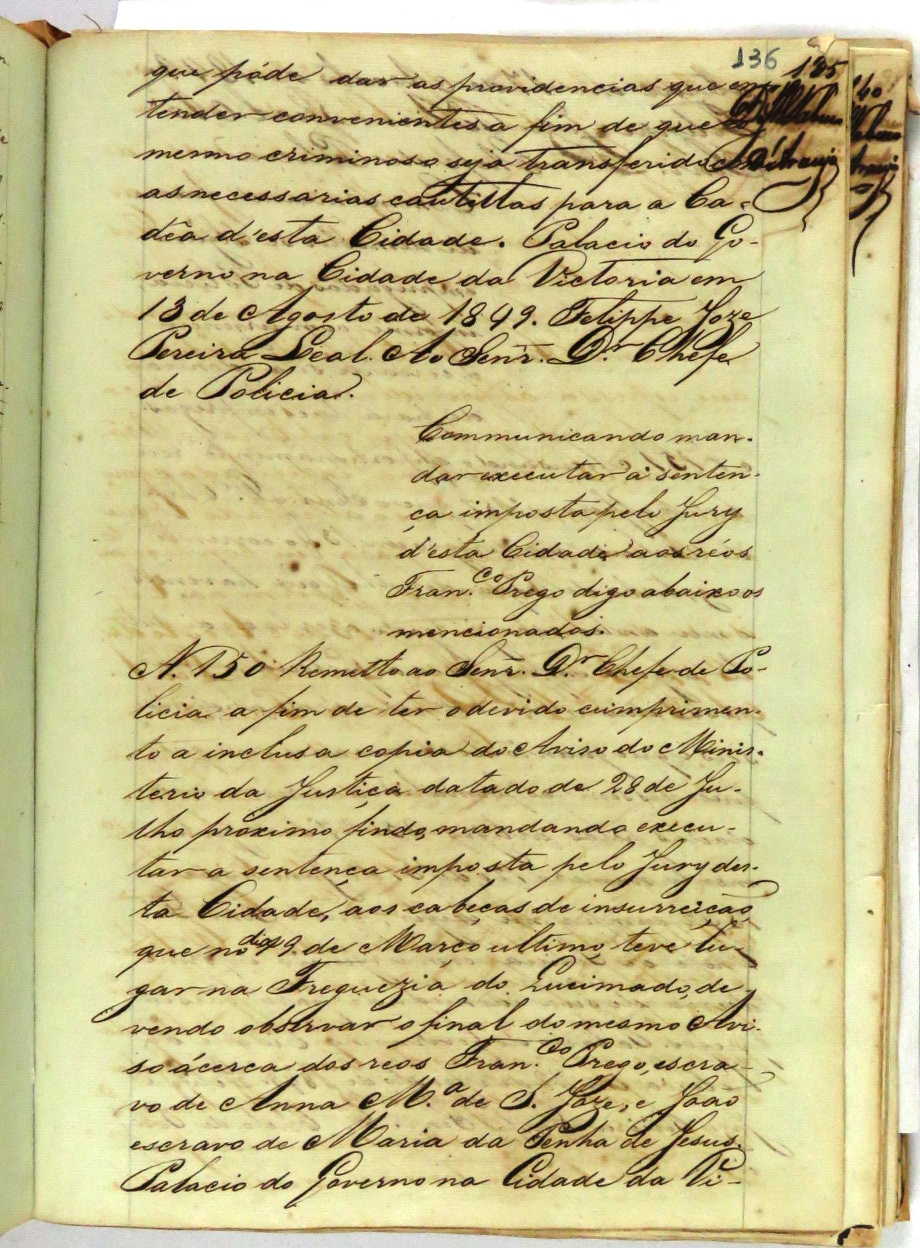 136
135
que póde dar as providencias que en-
tender convenientes a fim de que o
mesmo criminoso seja transferido com
as necessarias cautellas para a Ca-
dêa d'esta Cidade. Palacio do Go-
verno na Cidade da Victoria em
13 de Agosto de 1849. Felippe Joze
Pereira Leal. Ao Senr. Dr. Chefe
de Policia.
Communicando man-
dar executar a senten-
ça imposta pelo Jury
d'esta Cidade aos réos
Fran.co Prego digo abaixo os
mencionados.
N. 150 Remetto ao Senr. Dr. Chefe de Po-
licia a fim de ter o devido cumprimen-
to a inclusa copia do Aviso do Minis-
terio da Justiça datado de 28 de Ju-
lho proximo findo, mandando execu-
tar a sentença imposta pelo Jury des-
ta Cidade, aos cabeças de insurreição,
que no dia 19 de Março ultimo teve lu-
gar na Freguezia do Queimado, de-
vendo observar o final do mesmo Avi-
so ácerca dos reos Fran.co Prego, escra-
vo de Anna M.a de S. Joze, e João
escravo de Maria da Penha de Jesus.
Palacio do Governo na Cidade da Vi-